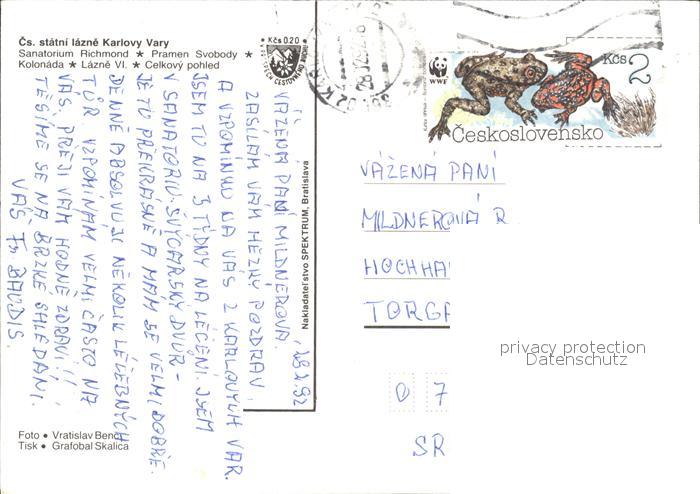 Čs. státní lázně Karlovy Vary
Sanatorium Richmond ★ Pramen Svobody ★
Kolonáda ★ Lázně VI. ★ Celkový pohled
Kčs 0.20
WWF
Kčs 2
Československo
Nakladateľstvo SPEKTRUM, Bratislava
28 X 92
VÁŽENÁ PANÍ MILDNEROVÁ.
ZASÍLÁM VÁM HEZKÝ POZDRAV
A VZPOMÍNKU NA VÁS Z KARLOVÝCH VAR.
JSEM TU NA 3 TÝDNY NA LÉČENÍ. JSEM
V SANATORIU. ŠVÝCARSKÝ DVŮR -
JE TU PŘEKRÁSNĚ A MÁM SE VELMI DOBŘE.
DENNĚ ABSOLVUJI NĚKOLIK LÉČEBNÝCH
TŮR VZPOMÍNÁM VELMI ČASTO NA
VÁS. PŘEJI VÁM HODNĚ ZDRAVÍ!!
TĚŠÍME SE NA BRZKÉ SHLEDÁNÍ.
VÁŠ BAUDIS.
VÁŽENÁ PANÍ
MILDNEROVÁ R.
HOCHHA
TORGA
0 7
SR
privacy protection
Datenschutz
Foto ● Vratislav Bencl
Tisk ● Grafobal Skalica